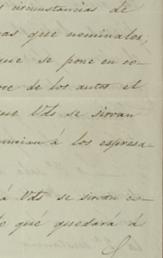 circunstancias de
que nominales,
que se pone en co
re de los autos el
que Vds se sirvan
á los expresa-
á Vds se sirvan co-
qué quedará á